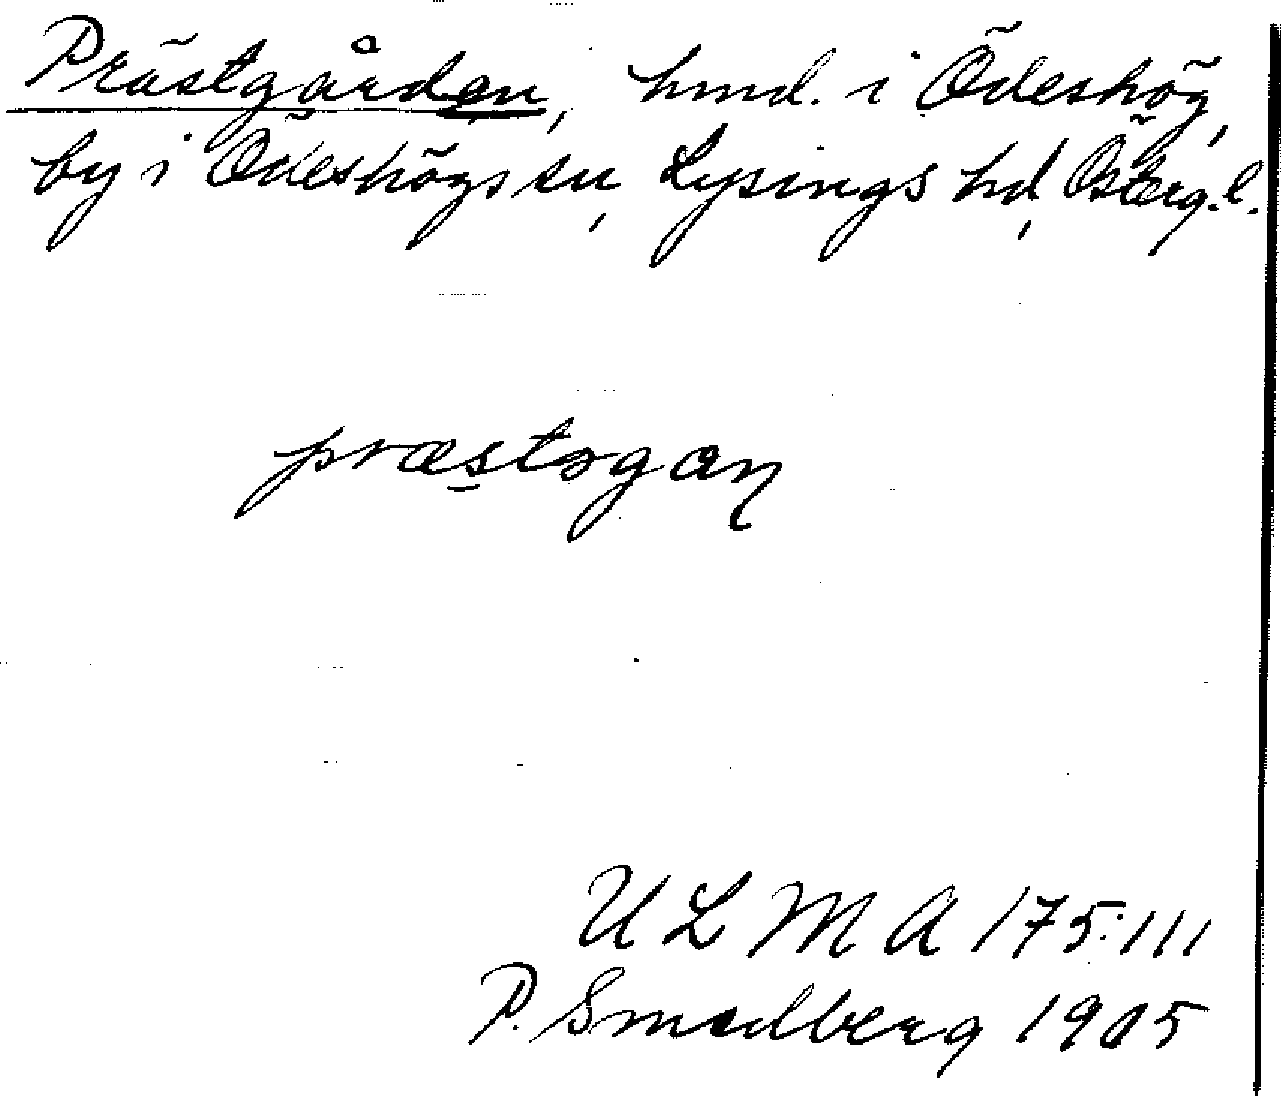 Prästgården, hmd. i Ödeshög,
by i Ödeshögs sn, Lysings hd, Österg.l.
præstogaɳ
U L M A 175:111
P. Smedberg 1905